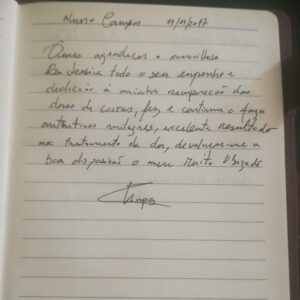 Nuno Campos 11/11/2017
Quero agradecer a maravilhosa
todo o seu empenho e
dedicação à minha recuperação das
dores de costas, fez e continua a fazer
autênticos milagres, excelente resultado
no tratamento da dor, devolveu-me a
boa disposição o meu Muito Obrigado